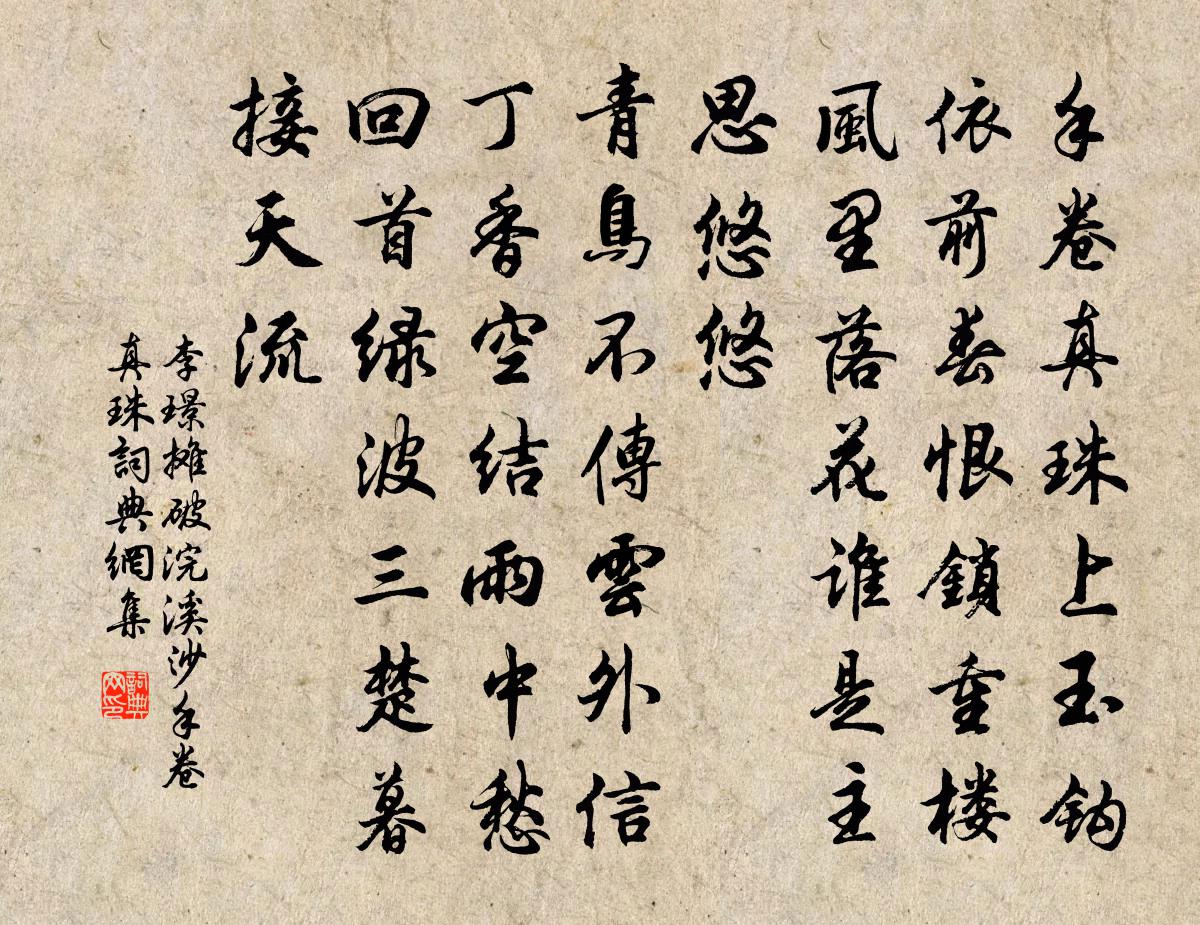 手卷真珠上玉钩
依前春恨鎖重楼
風里落花谁是主
思悠悠
青鳥不傳雲外信
丁香空结雨中愁
回首绿波三楚暮
接天流
李璟摊破浣溪沙手卷
真珠詞典網集
詞典网印